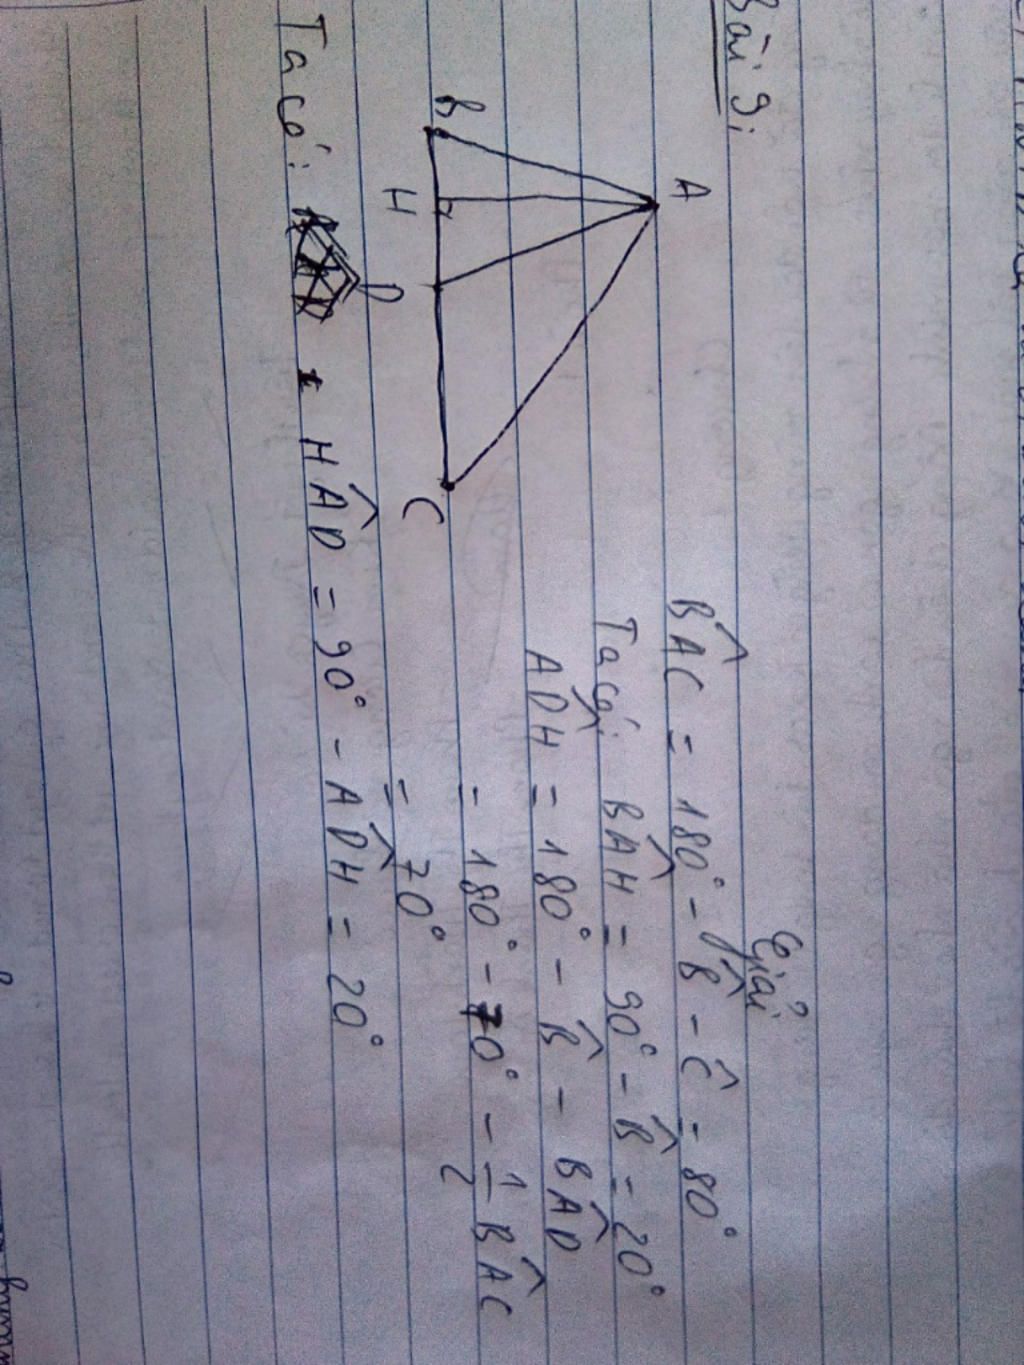 Bài 9:
A
B
H
D
C
Giải
BÂC = 180° - B̂ - Ĉ = 80°
Ta có: BÂH = 90° - B̂ = 20°
AD̂H = 180° - B̂ - BÂD
= 180° - 70° - 1/2 BÂC
= 70°
Ta có: HÂD = 90° - AD̂H = 20°